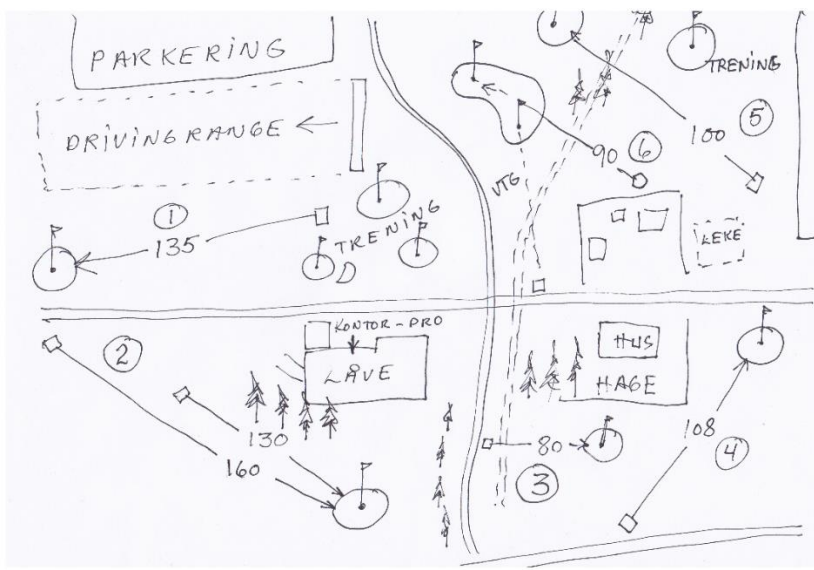 PARKERING
DRIVINGRANGE
TRENING
5
100
90
6
VTG
1
135
TRENING
LEKE
KONTOR-PRO
2
LÅVE
HUS
HAGE
130
160
80
3
108
4